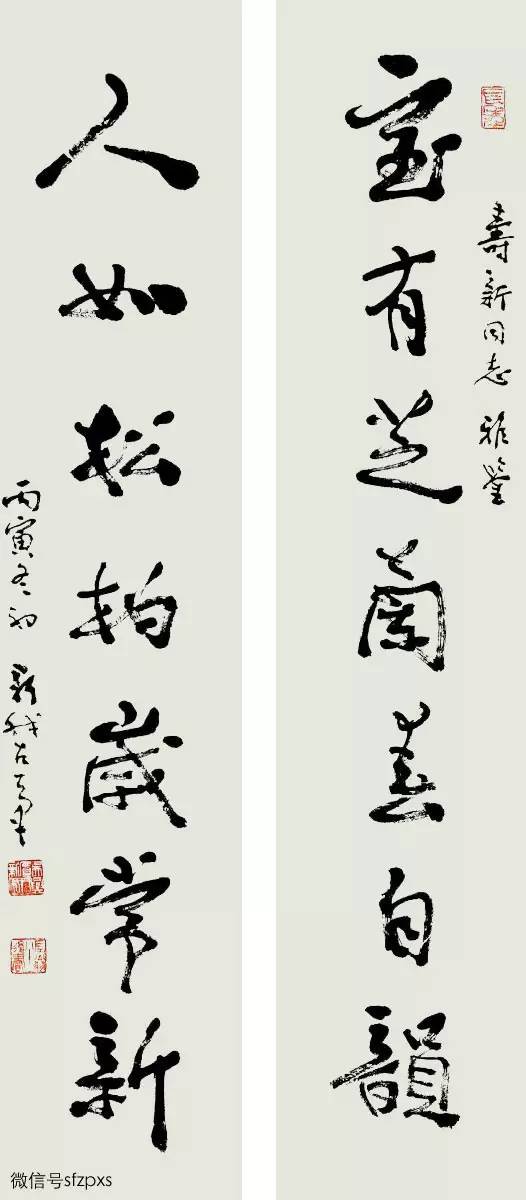 壽新同志 雅鑒
室有芝蘭春自韻
人如松柏歲常新
丙寅冬初 新我左筆
微信号sfzpxs